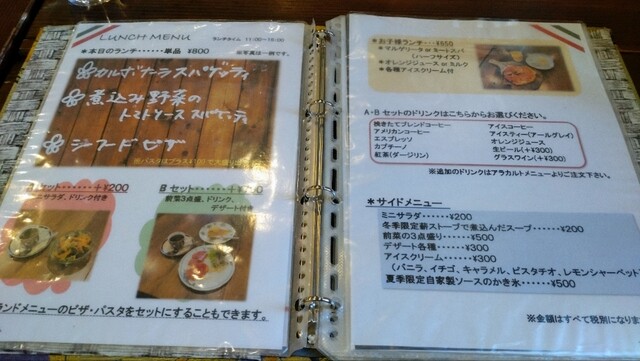 LUNCH MENU
ランチタイム 11:00~15:00
*本日のランチ……単品 ¥800
※写真は一例です。
カルボナーラスパゲッティ
煮込み野菜の
トマトソーススパゲッティ
シーフードピザ
セット……+¥200
ニサラダ、ドリンク付き
Bセット……+
前菜3点盛り、ドリンク、
デザート付き
ランドメニューのピザ・パスタをセットにすることもできます。
*お子様ランチ…¥650
*マルゲリータ or ミートスパ
(ハーフサイズ)
*オレンジジュース or ミルク
*各種アイスクリーム付
A・Bセットのドリンクはこちらからお選びください。
挽きたてブレンドコーヒー
アメリカンコーヒー
エスプレッソ
カプチーノ
紅茶(ダージリン)
アイスコーヒー
アイスティー(アールグレイ)
オレンジジュース
生ビール(+¥300)
グラスワイン(+¥300)
※追加のドリンクはアラカルトメニューよりご注文下さい。
*サイドメニュー
ミニサラダ……¥200
冬季限定薪ストーブで煮込んだスープ……¥200
前菜の3点盛り……¥500
デザート各種……¥300
アイスクリーム……¥300
(バニラ、イチゴ、キャラメル、ピスタチオ、レモンシャーベット)
夏季限定自家製ソースのかき氷……¥500
※金額はすべて税別になりま